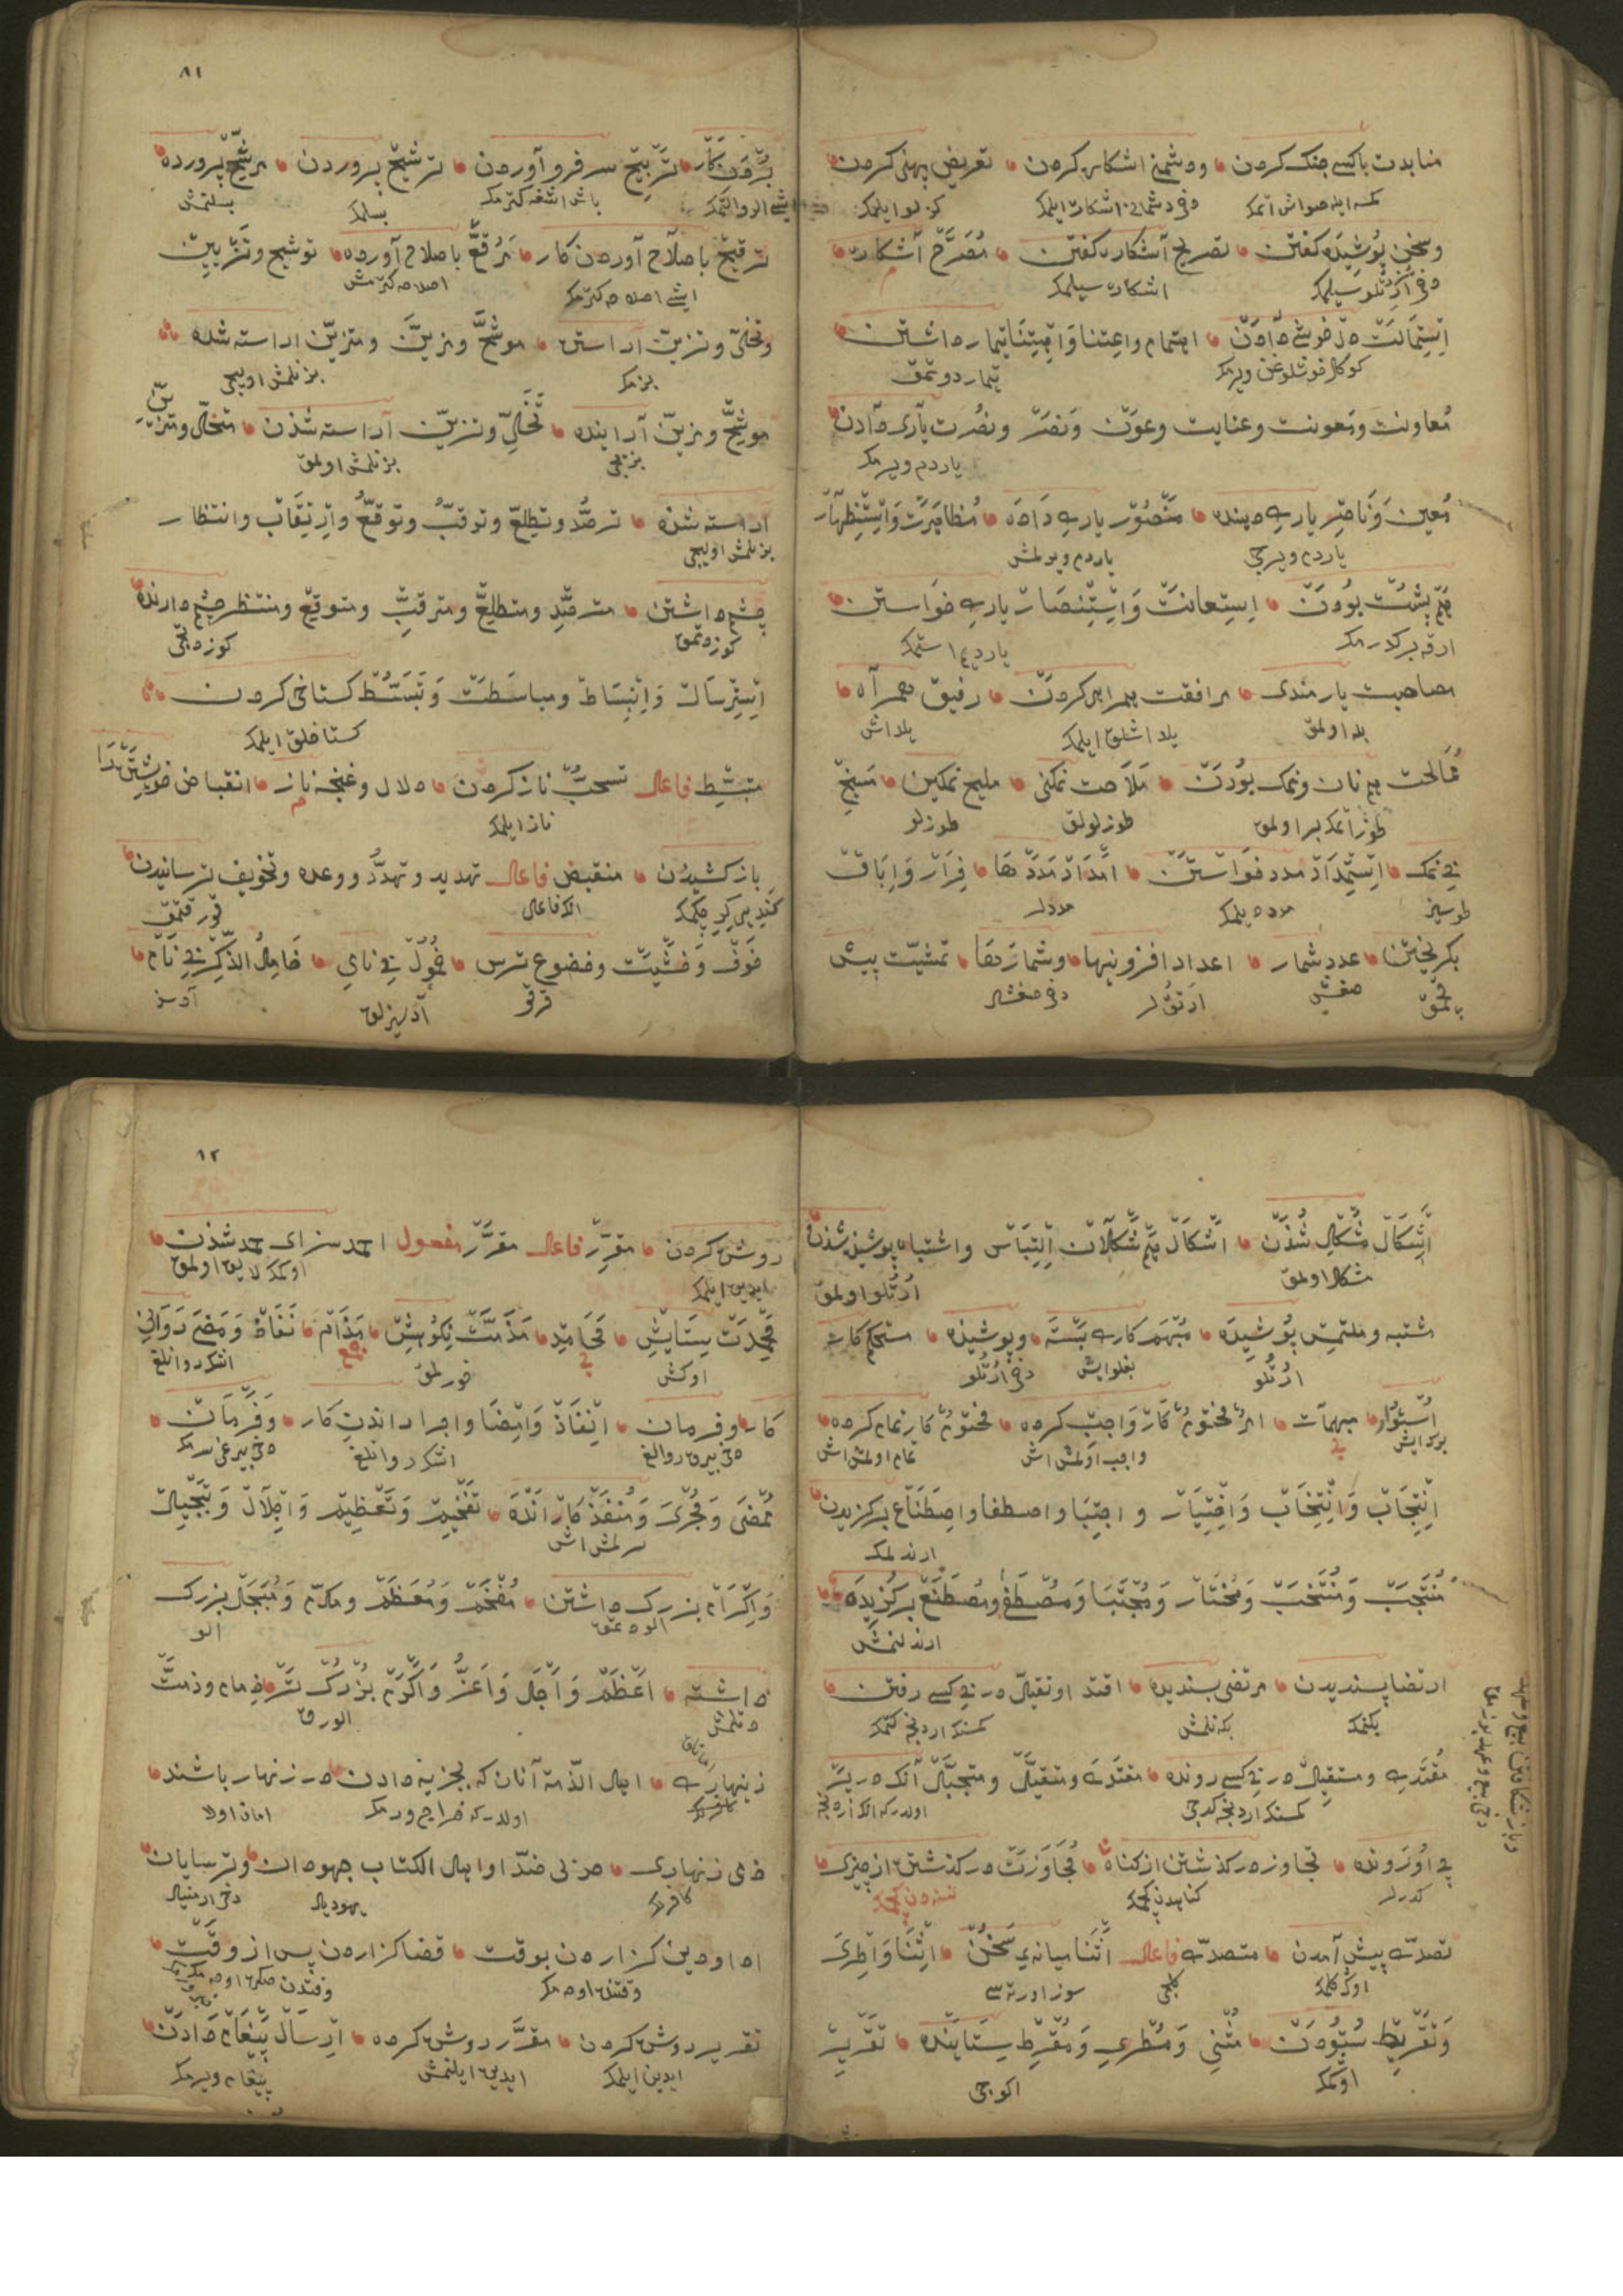 منابدت باکسی جنک کردن ودشمنی اشکاره کردن تعریض پهنی کردن
کمسه ایله صواش اتمک دخی دشمانلی اشکاره ایلمک کزلو ایلمک
وسخن پوشیده کفتن تصریح آشکاره کفتن مصرح آشکاره
دخی اورتلو سیلمک اشکاره سیلمک
استمالت دلخوشی دادن اهتمام واعتنا واقتنا تیمار داشتن
کوکل خوشلوغن ویرمک تیمار دوتمق
معاونت ومعونت وعنایت وعون ونصر ونصرت یاری دادن
یاردم ویرمک
معین وناصر یاری دهنده منصور یاری داده مظاهرت واستظهار
یاردم ویریجی یاردم ویرلمش
هم پشت بودن استعانت واستنصار یاری خواستن
ارقه بر کدرمک یاردم استمک
مصاحبت یارمندی مرافقت همراهی کردن رفیق همراه
یلداشلق ایلمک یلداش
ممالحت هم نان ونمک بودن ملاحت نمکنی ملیح نمکین مسیخ
طوز اتمک بر اولمق طوزلولق طوزلو
بی نمک استمداد مدد خواستن امداد مددها فرار واباق
طوسیز مدد دیلمک مددلر
بکریختن عدد شمار اعداد افزونیها وشمارها تمشیت پیش
قچمق صغش ارتقلر دخی صغشلر
٨١
بردن کار تربیخ سر فرو آوردن ترشیح پروردن مرشح پرورده
ایشی الرو التمک باش اشغه کترمک بسلمک بسلنمش
ترقیح باصلاح آوردن کار مرقح باصلاح آورده توشیح وتزیین
ایشی اصلاحه کترمک اصلاحه کترمش
وتحلی وتزین آراستن موشح ومزین ومتزین اراسته شده
بزمک بزنلمش اولیجی
موشح ومزین آراینده تحلی وتزین آراسته شدن متحلی ومتزین
بزیجی بزنلمش اولمق
اراسته شده ترصد وتطلع وترقب وتوقع وارتقاب وانتظار
بزنلمش اولیجی
چشم داشتن مترصد ومتطلع ومترقب ومتوقع ومنتظر چشم دارنده
کوز دوتمق کوز دتیجی
استرسال وانبساط ومباسطت وتبسط کستاخی کردن
کستاخلق ایلمک
متبسط فاعل تسحب ناز کردن دلال وغنجه ناز انقباض خویشتن را
ناز ایلمک
باز کشیدن منقبض فاعل تهدید وتهدد ووعده وتخویف ترسانیدن
کندیلری کیرو چکمک الک فاعلی قورقتمق
خوف وخشیت وخضوع ترس خمول بی نامی خامل الذکر بی نام
قرقو آدسیزلق آدسز
اشکال مشکل شدن اشکال هم شکلان التباس واشتباه پوشیده شدن
مشکل اولمق اورتلو اولمق
مشتبه وملتمس پوشیده مبهم کار بسته وپوشیده مستحکم کار
اورتلو بغلوایش دخی اورتلو
استوار مبهمات امر محتوم کار واجب کرده محتوم کار تمام کرده
برک ایش واجب اولمش اش تمام اولمش اش
انتجاب وانتخاب واختیار و اجتبا واصطفا واصطناع برکزیدن
ارندلمک
منتجب ومنتخب ومختار ومجتبا ومصطفی ومصطنع برکزیده
ارندلنمش
ارتضا پسندیدن مرتضی پسندیده اقتدا وتقبل در پی کسی رفتن
بکنمک بکنلمش کمسنک اردنجه کتمک
مقتدی ومستقبل در پی کسی رونده مقتدی ومتقبل ومتجبل آنک در پس
کمسنک اردنجه کدیجی
پی اورونده تجاوز در کذشتن از کناه تجاوزت در کذشتن از چیزی
کدرلر کناهدن کچمک نسنه دن کچمک
تصدی پیش آمدن متصدی فاعل اثنا میانه سخن اثنا واطری
اوکه کلمک کلیجی سوز اورته سی
وتقریظ ستودن مثنی ومطری ومقرظ ستاینده تقریر
اوکمک اکوجی
٨٢
روشن کردن مقرر فاعل مقرر مفعول احمد سزای حمد شدن
ایدین ایلمک اوکمکه لایق اولمق
محمدت ستایش محامد مذمت نکوهش مذام جمع نفاذ ومضی روانی
اوکش خورلمق اشلر روانلغی
کار وفرمان انفاذ وامضا واجرا راندن کار وفرمان
دخی بیرق روانلغی اشلر روانلغی
ممضی ومجری ومنفذ کار رانده تفخیم وتعظیم واجلال وتبجیل
سرلمش اش
واکرام بزرک داشتن مفخم ومعظم ومکرم ومبجل بزرک
الو دتمق الو
داشته اعظم واجل واعز واکرم بزرک تر ذمام وذمت
دتلمش الورق
زینهاری اهل الذمة آنان که بجزیه دادن در زنهار باشند
اولدر که خراج ویرمک امانده اولا
ذمی زنهاری حزنی ضد او اهل الکتاب جهودان وترسایان
کافرلر یهودیلر دخی ارمنیلر
ادا ودین کزاردن بوقت قضا کزاردن پس از وقت
وقتنده اودمک وقتدن صکره اودمک
تقریر روشن کردن مقرر روشن کرده ارسال پیغام دادن
ایدین ایلمک ایدین ایلنمش پیغام ویرمک